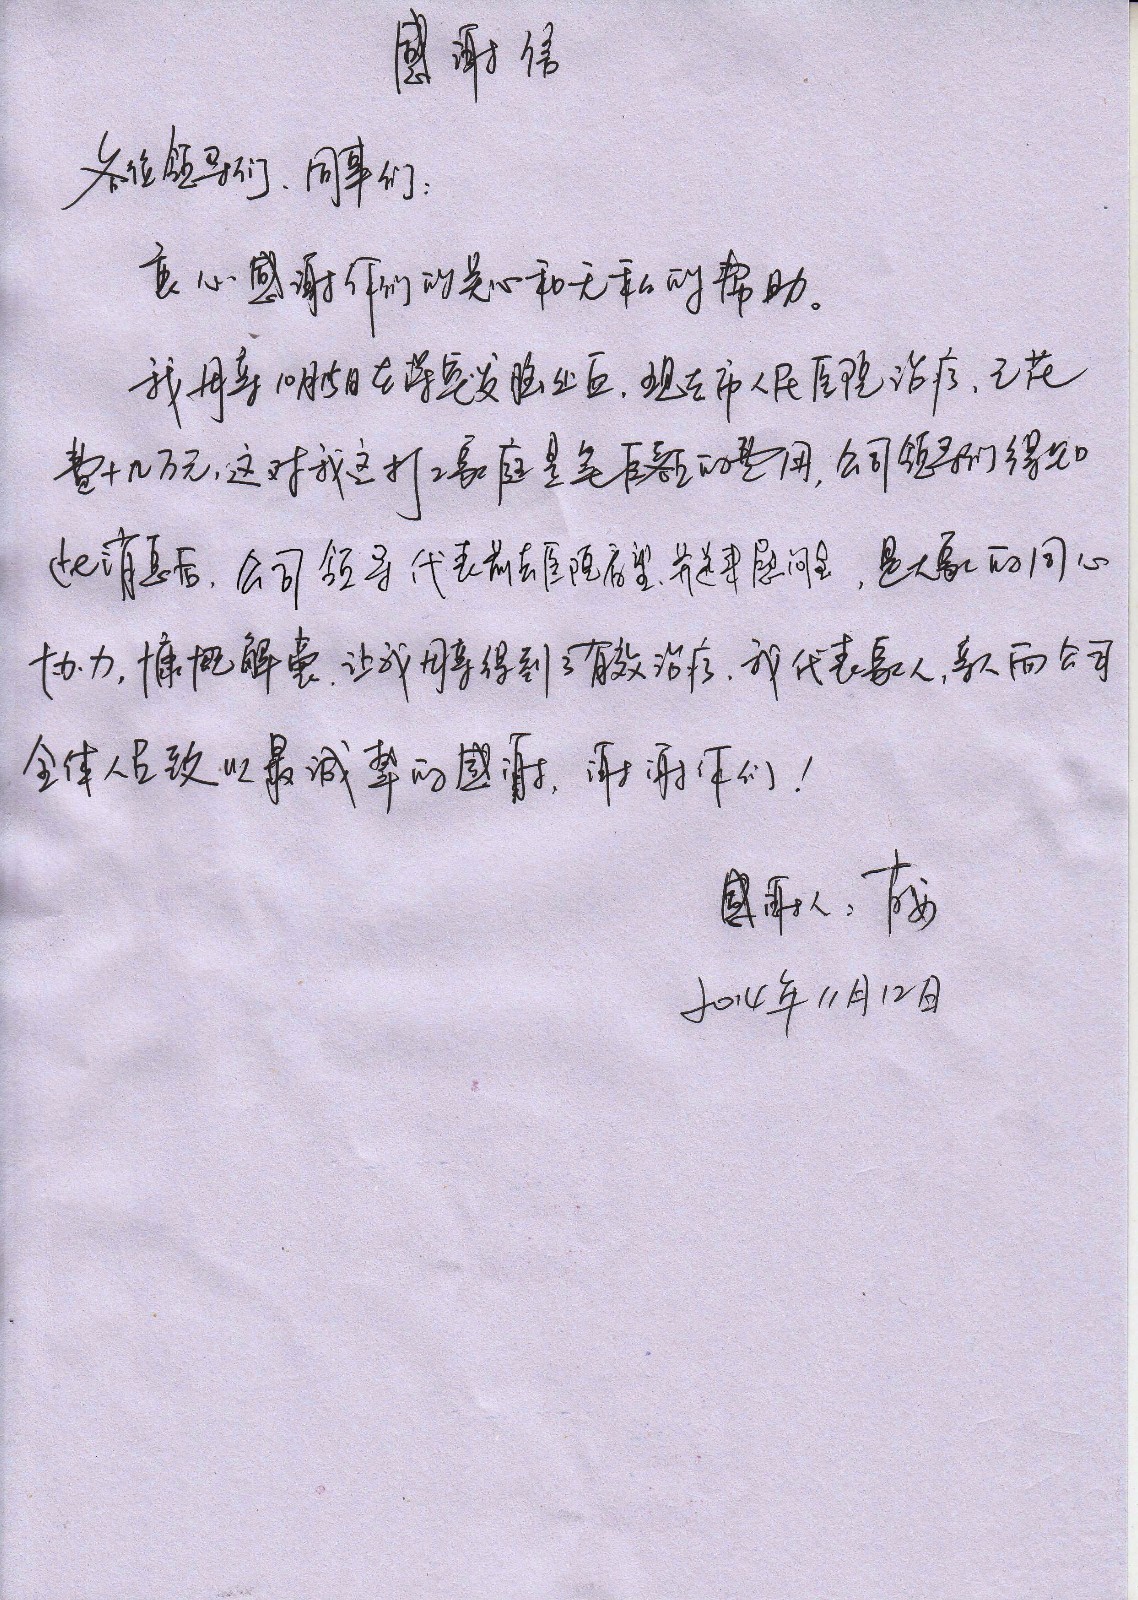 感谢信
各位领导们、同事们：
衷心感谢你们的关心和无私的帮助。
我母亲10月15日在突发脑出血，现在市人民医院治疗，已花
费十几万元，这对我这打工家庭是笔巨额的费用，公司领导们得知
此消息后，公司领导代表前去医院看望，并送来慰问金，是大家的同心
协力，慷慨解囊，让我母亲得到了有效治疗，我代表家人，亲人向公司
全体人员致以最诚挚的感谢，谢谢你们！
感谢人：
2014年11月12日